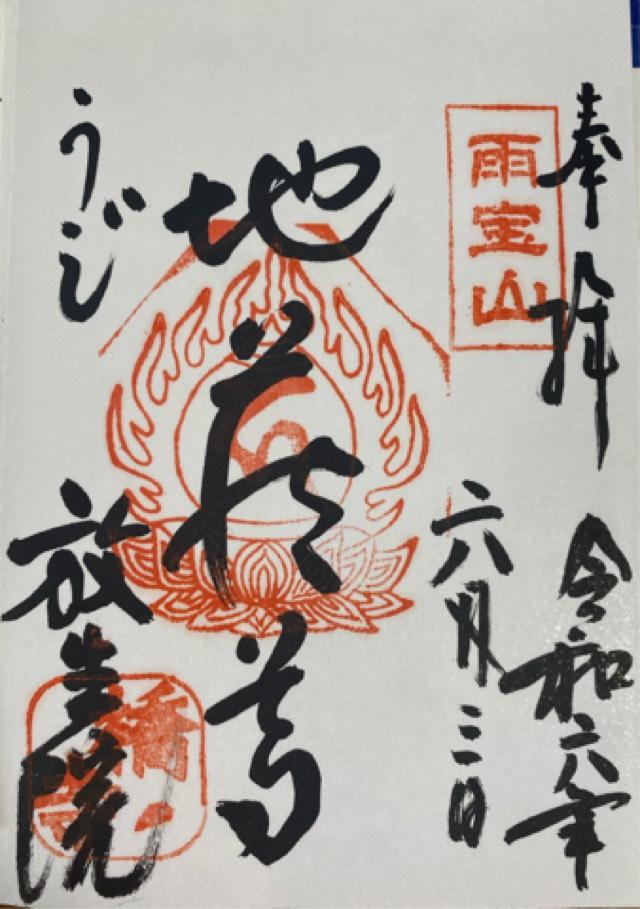 奉拝
令和六年
六月三日
雨宝山
地蔵尊
うじ
放生院
橋寺